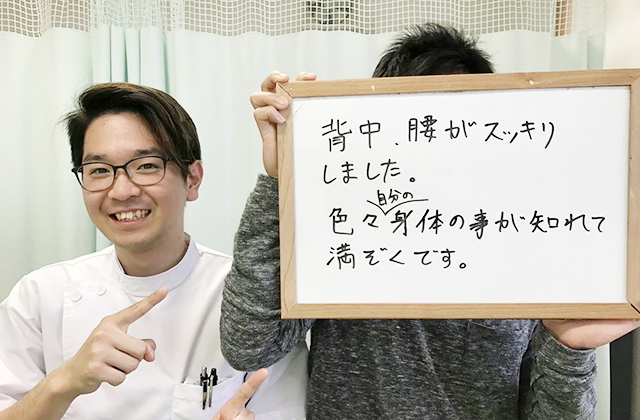 背中、腰がスッキリ
しました。
自分の
色々身体の事が知れて
満ぞくです。